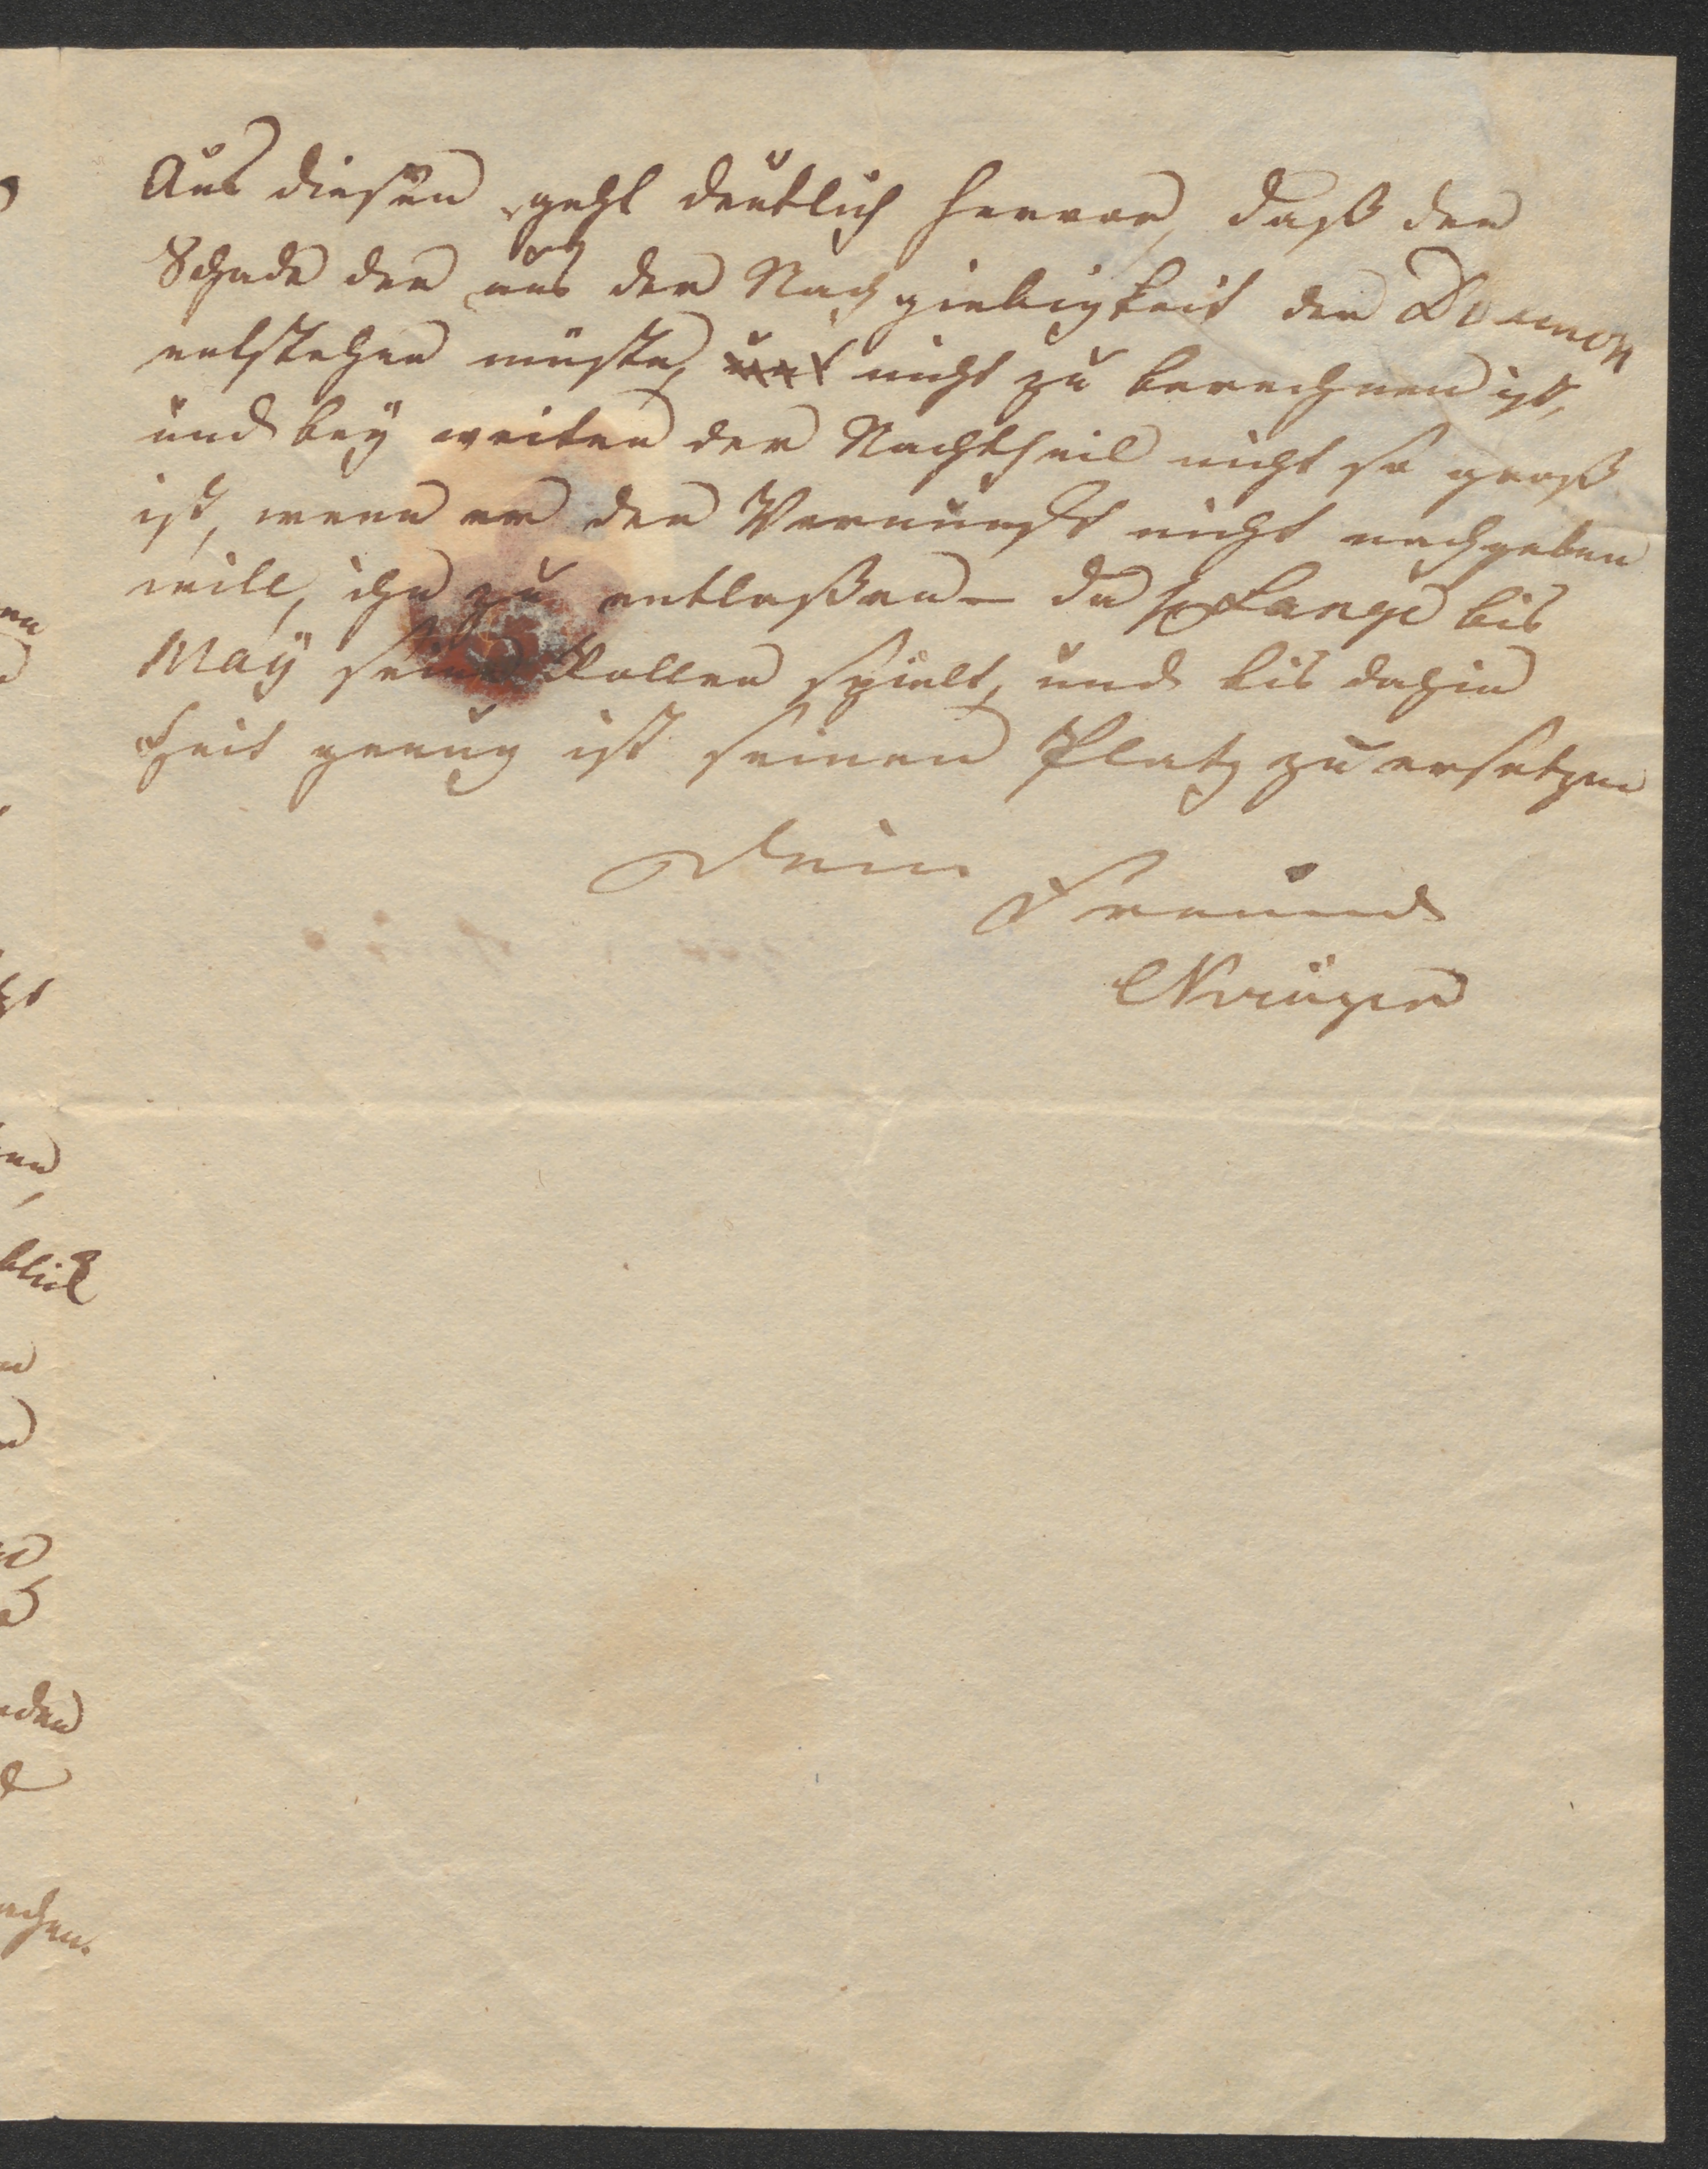 Aus diesen geht deutlich hervor, daß der
Schade der aus der Nachgiebigkeit der
entstehen müste, nicht zu berechnen ist,
und beÿ weiten der Nachtheil nicht so groß
ist, wenn er der Vernunft nicht nachgeben
will, ihn zu entlaßen – da H Lange bis
Maÿ seine Rollen spielt, und bis dahin
Zeit genug ist seinen Platz zu ersetzen
Dein
Freund
Krüger
en
blick
nden
achen.